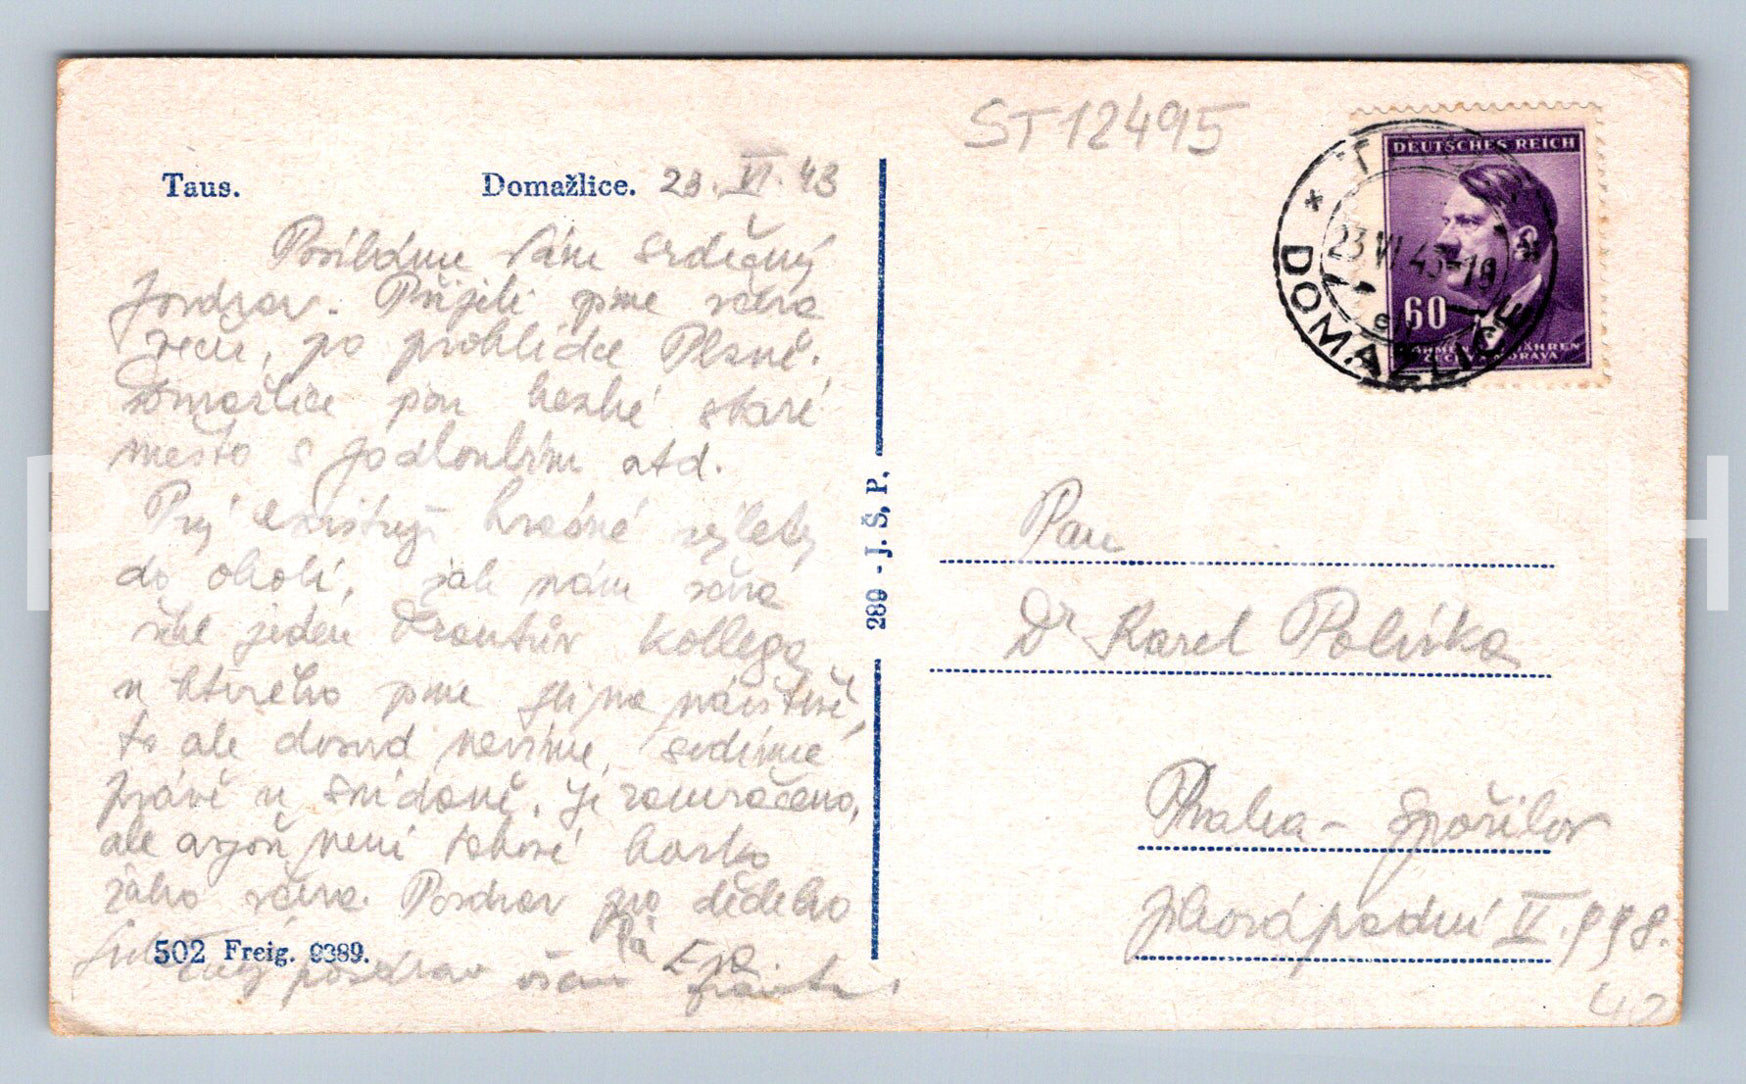 ST12495
Taus. Domažlice. 23.VI.43
Posíláme Vám srdečný
pozdrav. Přijeli jsme včera
večer, po prohlídce Plzně.
Domažlice jsou hezké staré
město s podloubím atd.
Prý existují krásné výlety
do okolí, jak nám včera
řekl jeden Frantův kollega
u kterého jsme byli na návštěvě,
to ale dosud nevíme, sedíme
právě u snídaně. Je zamračeno,
ale aspoň není takové horko
jako včera. Pozdrav pro dědečka
Pá Eva
Srdečný pozdrav všem Franta.
502 Freig. 9389.
289 - J. Š, P.
DEUTSCHES REICH
60
BÖHMEN UND MÄHREN
ČECHY A MORAVA
DOMAŽLICE
23 VI 43-18
Pan
Dr Karel Polívka
Praha - Spořilov
Jihozápadní V. 998.
42